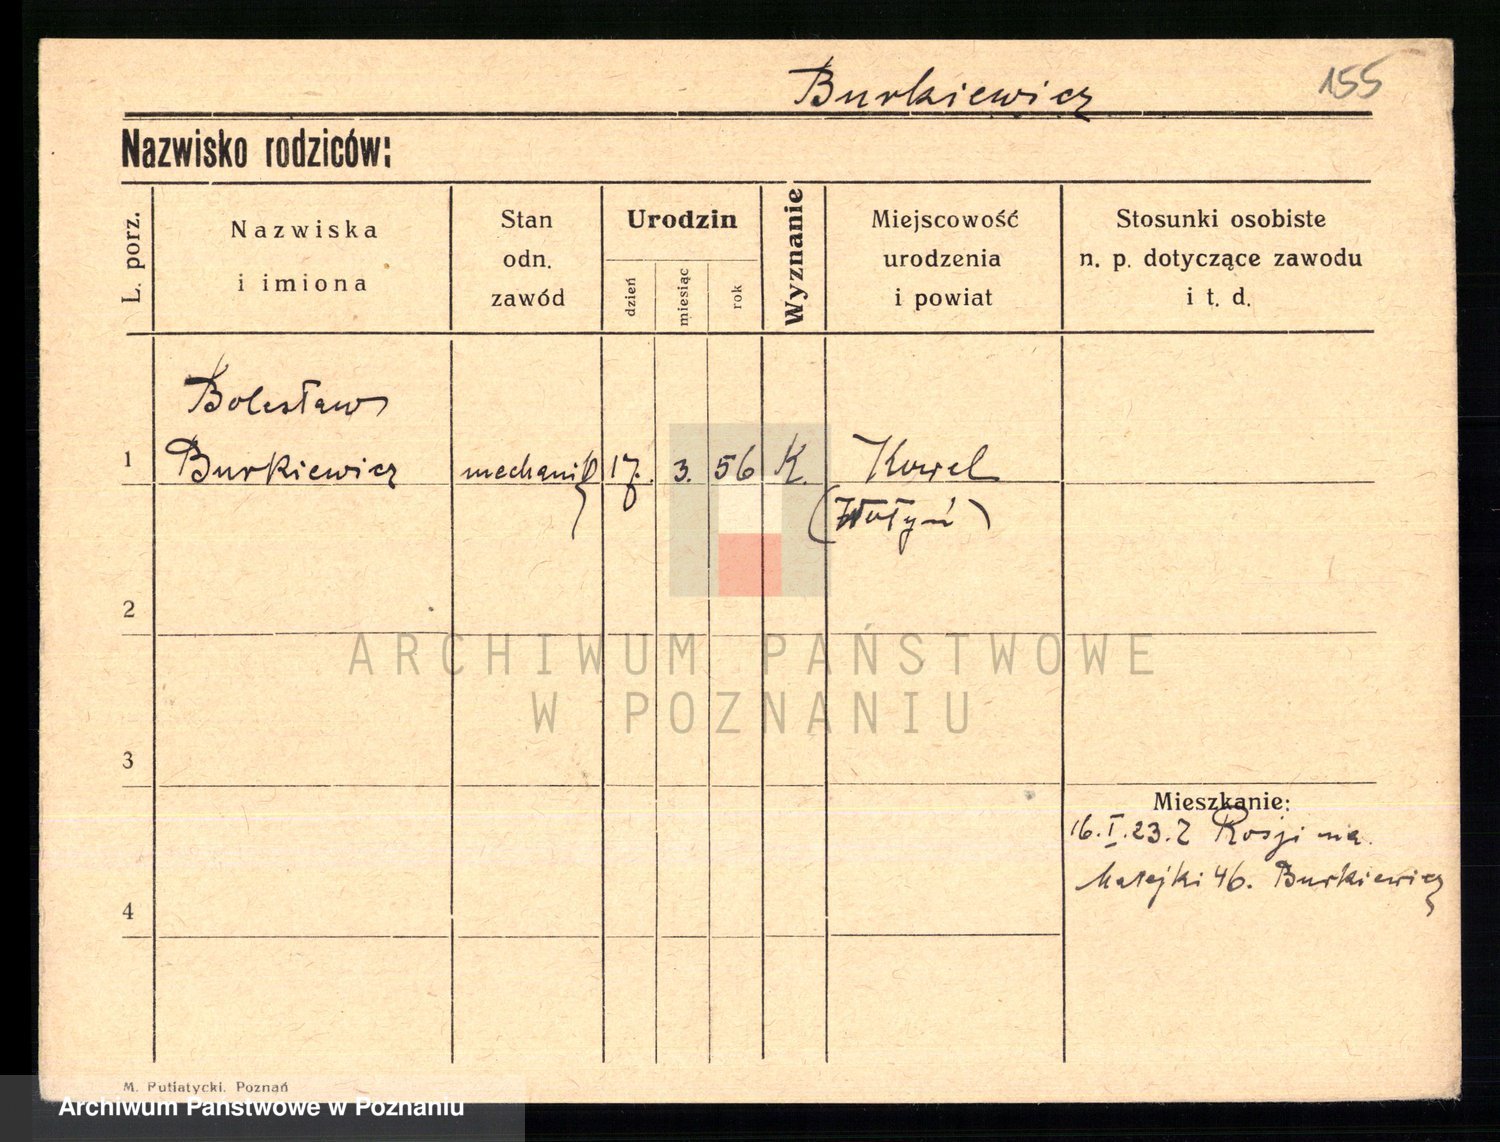 Burkiewicz
155
Nazwisko rodziców:
L. porz.
Nazwiska
i imiona
Stan
odn.
zawód
Urodzin
dzień
miesiąc
rok
Wyznanie
Miejscowość
urodzenia
i powiat
Stosunki osobiste
n. p. dotyczące zawodu
i t. d.
Bolesław
1 Burkiewicz mechanik 17. 3. 56 K. Kowel
(Wołyń)
2
ARCHIWUM PAŃSTWOWE
W POZNANIU
3
Mieszkanie:
16.I.23. Z Rosji na
Matejki 46. Burkiewicz
4
M. Putiatycki, Poznań
Archiwum Państwowe w Poznaniu